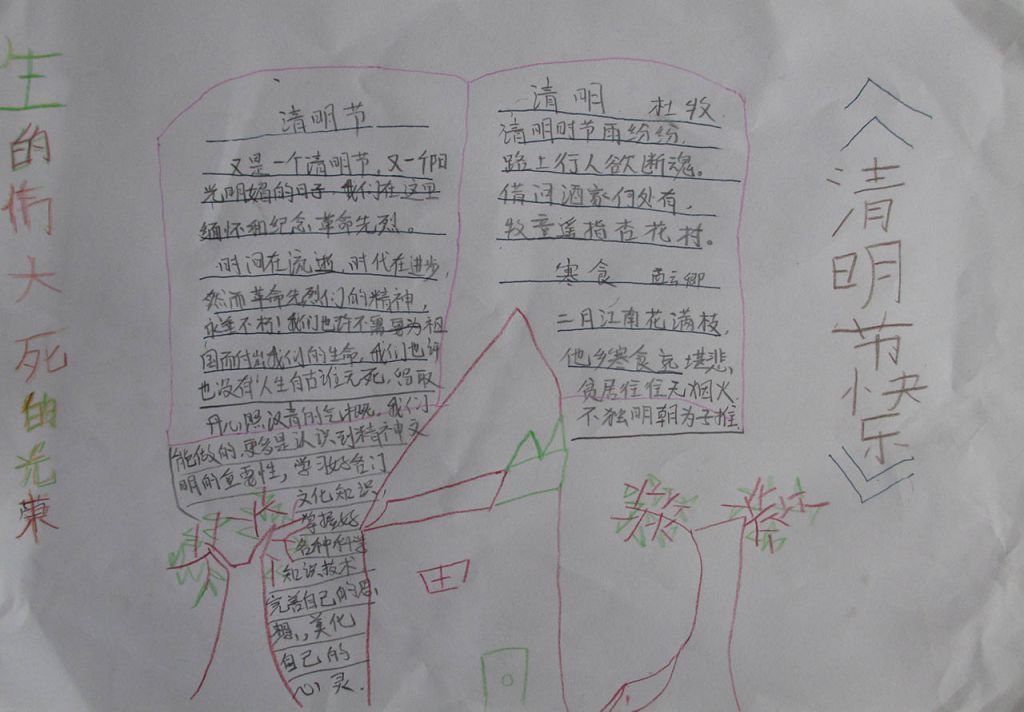 生的伟大死的光荣
清明节
又是一个清明节,又一个阳
光明媚的日子 我们在这里
缅怀和纪念革命先烈。
时间在流逝,时代在进步,
然而革命先烈们的精神,
永垂不朽!我们也许不需要为祖
国而付出我们的生命,我们也许
也没有人生自古谁无死,留取
丹心照汉青的气概,我们
能做的,更多是认识到精神文
明的重要性,学习好
文化知识,
掌握好
各种科学
知识技术
完善自己的思
想,美化
自己的
心灵.
清明 杜牧
清明时节雨纷纷,
路上行人欲断魂。
借问酒家何处有,
牧童遥指杏花村。
寒食 孟云卿
二月江南花满枝,
他乡寒食远堪悲,
贫居往往无烟火
不独明朝为子推
《清明节快乐》